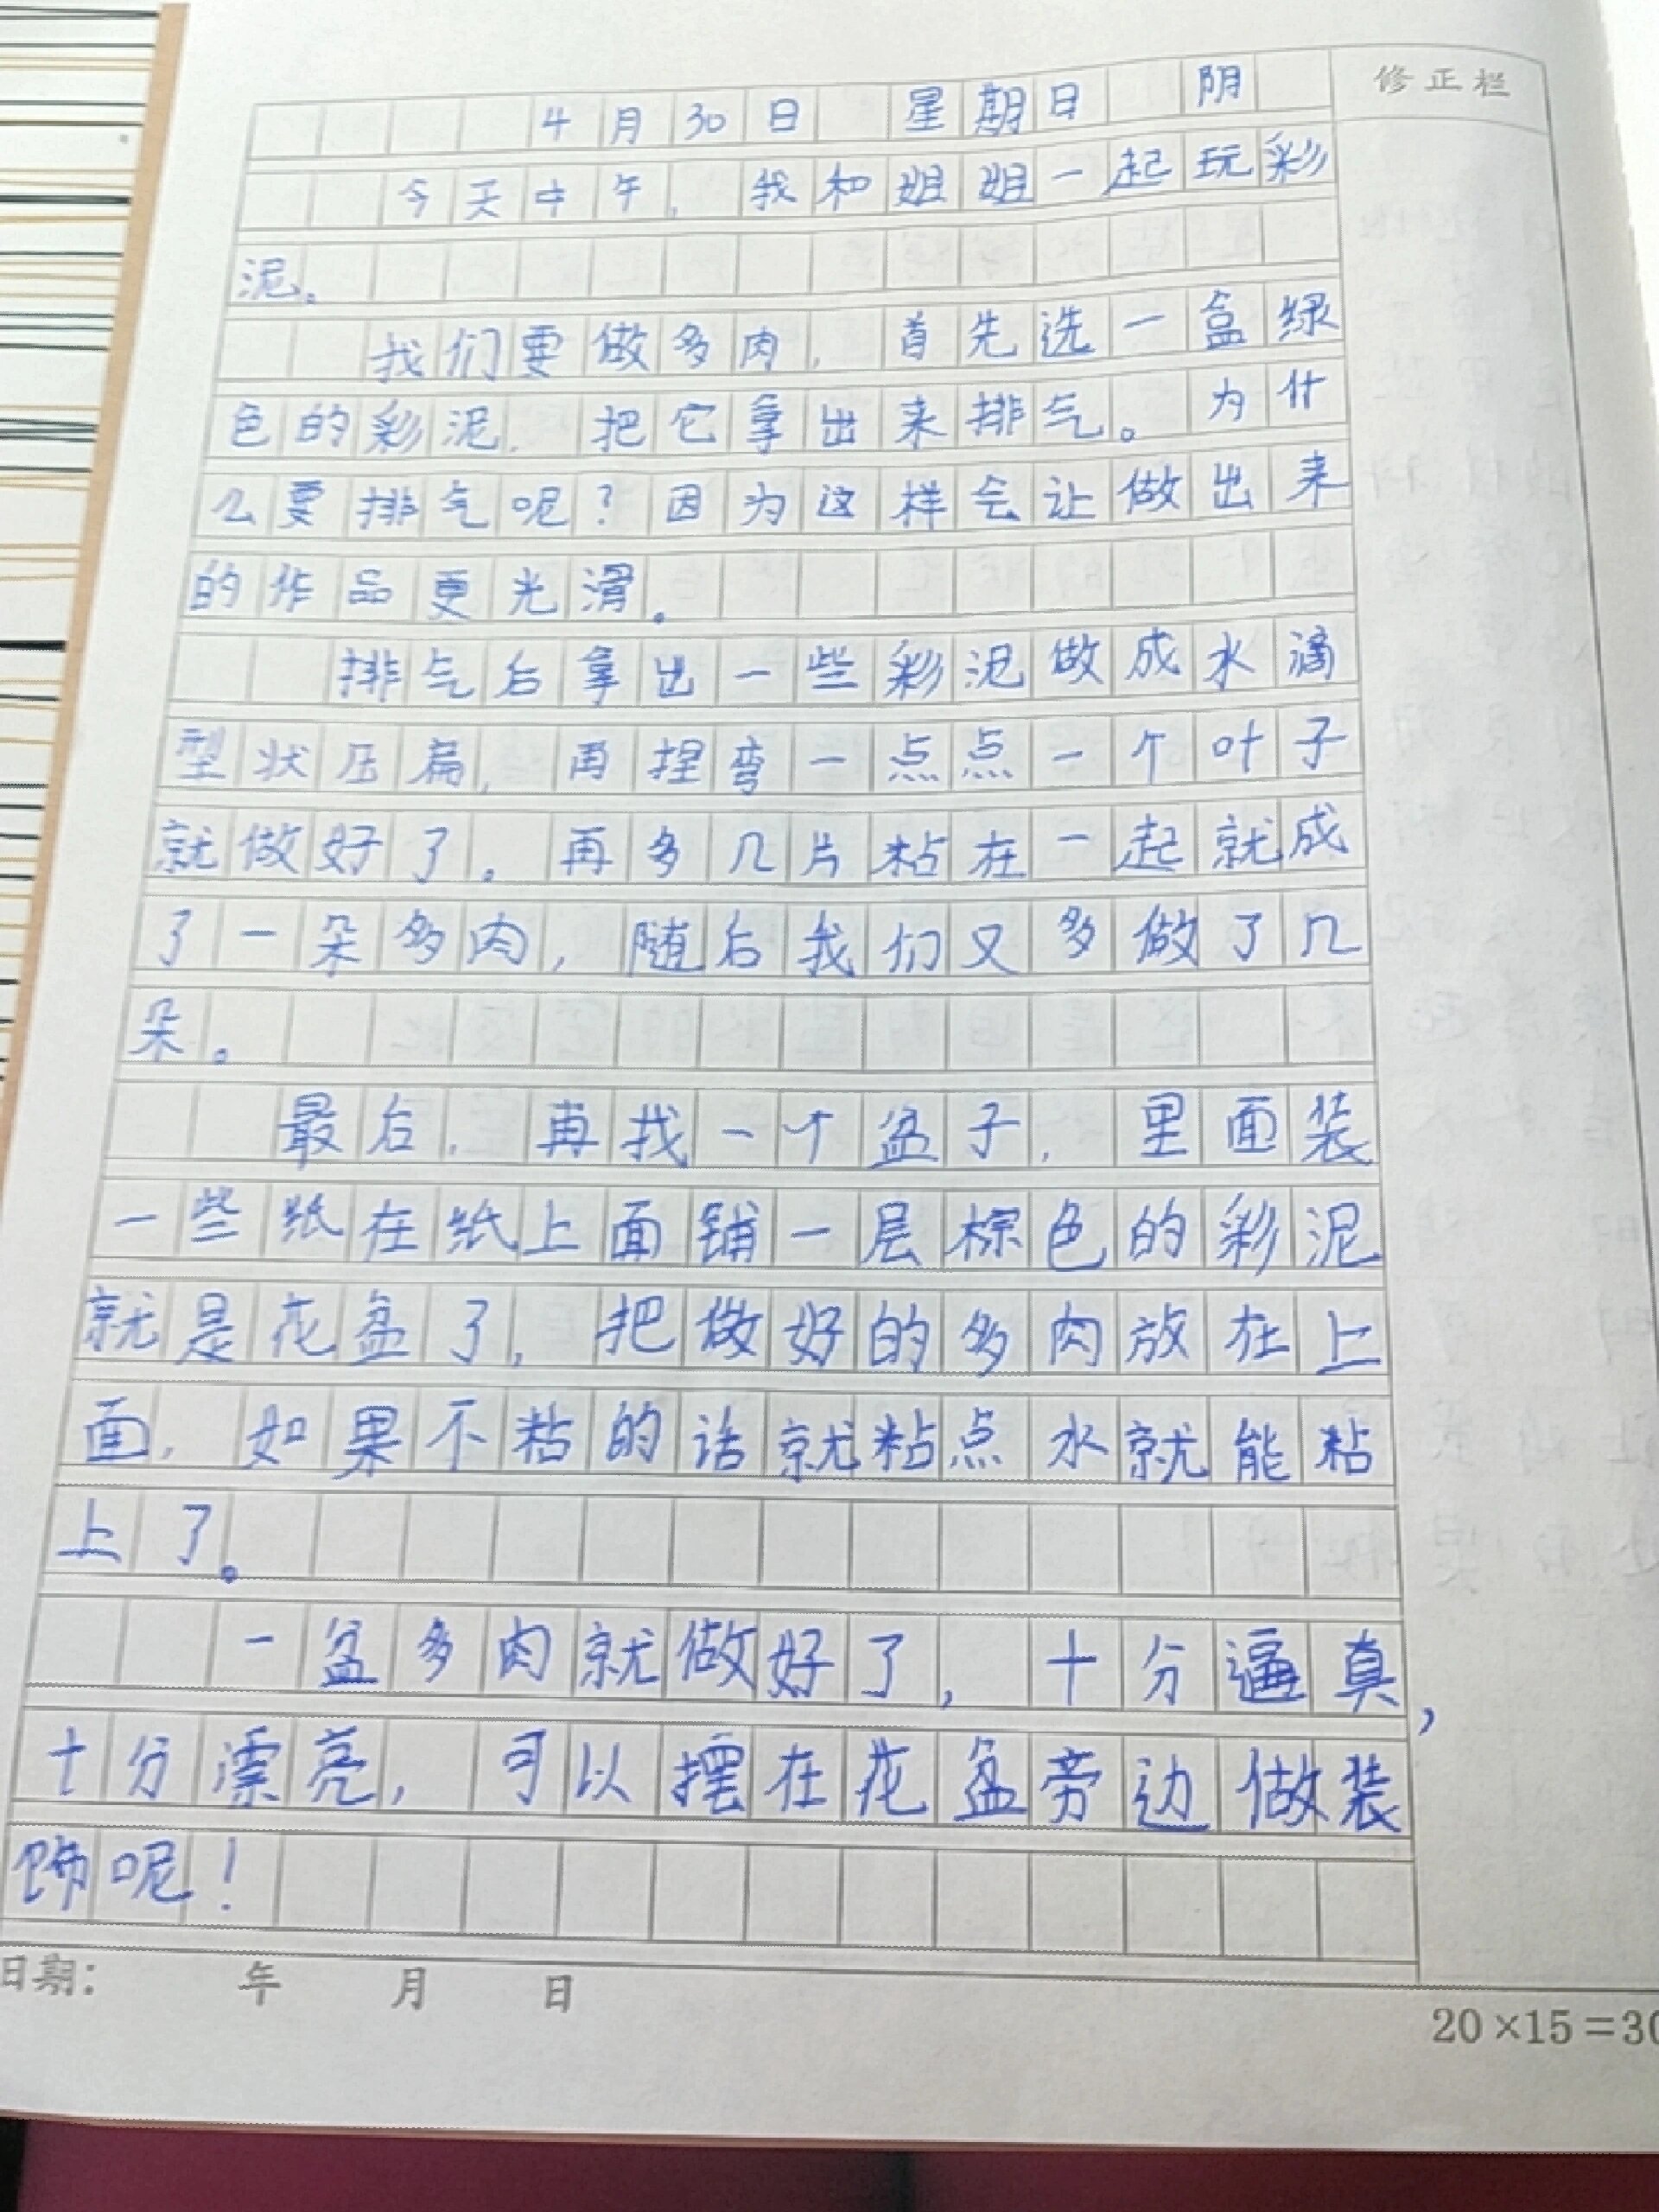 修正栏
4月30日 星期日 阴
今天中午，我和姐姐一起玩彩
泥。
我们要做多肉，首先选一盒绿
色的彩泥，把它拿出来排气。为什
么要排气呢？因为这样会让做出来
的作品更光滑。
排气后拿出一些彩泥做成水滴
型状压扁，再捏弯一点点一个叶子
就做好了。再多几片粘在一起就成
了一朵多肉，随后我们又多做了几
朵。
最后，再找一个盆子，里面装
一些纸在纸上面铺一层棕色的彩泥
就是花盆了，把做好的多肉放在上
面，如果不粘的话就粘点水就能粘
上了。
一盆多肉就做好了，十分逼真，
十分漂亮，可以摆在花盆旁边做装
饰呢！
日期： 年 月 日
20×15=30